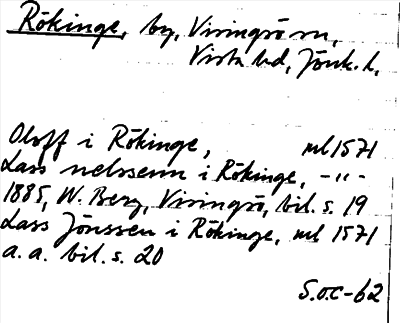 Rökinge, by, Visingsö sn,
Vista hd, Jönk. l.
Oloff i Rökinge, ml 1571
Lass nelssenn i Rökinge, -"-
1885, W. Berg, Visingsö, bil. s. 19
Lass Jönssen i Rökinge, ml 1571
a. a. bil. s. 20
S.o.c-62